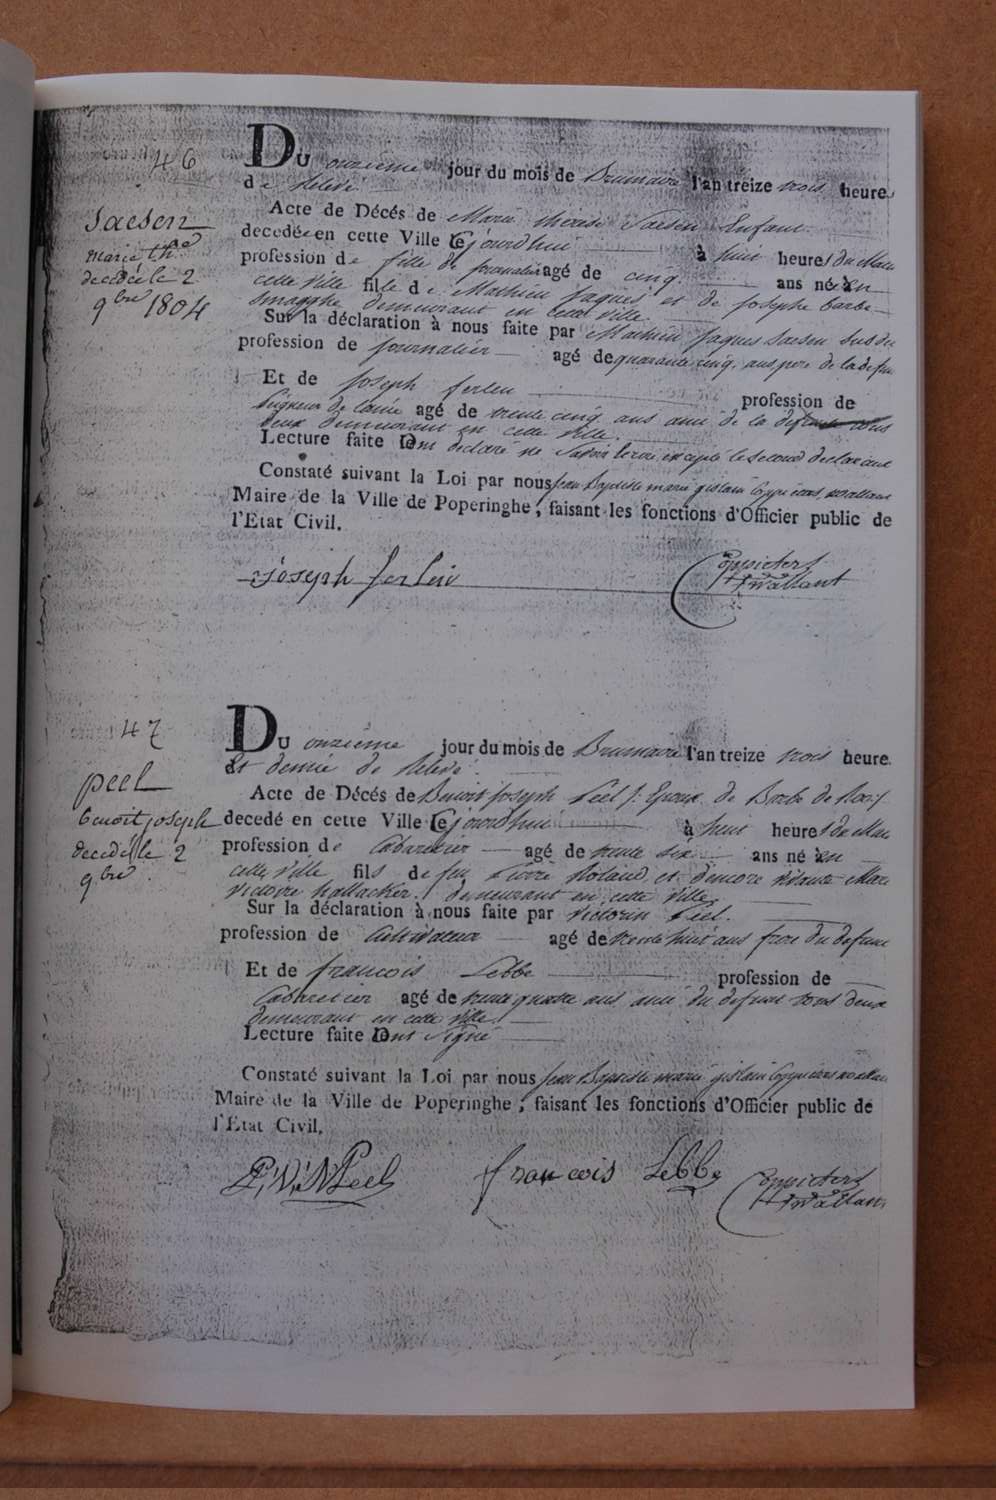 46
Saesen
marie th.se
decedée le 2
9bre 1804
Du onzieme jour du mois de Brumaire l'an treize trois heure
de Relevé
Acte de Décés de Marie therese Saesen Enfant
decedée en cette Ville cejourdhui à huit heures du Matin
profession de fille de journalier agé de cinq ans né en
cette ville fille de Mathieu Jaques et de Josephe barbe
smagghe demeurant en cette ville
Sur la déclaration à nous faite par Mathieu Jaques Saesen susdit
profession de journalier agé de quarante cinq ans pere de la defun
Et de Joseph ferlen profession de
Peigneur de laine agé de trente cinq ans ami de la defunte tous
deux demeurant en cette ville
Lecture faite ont declaré ne savoir ecrire excepté le second declarant
Constaté suivant la Loi par nous Jean Baptiste marie gislain
Maire de la Ville de Poperinghe, faisant les fonctions d'Officier public de
l'Etat Civil.
Joseph ferlein
Coppieters
t'wallant
47
peel
benoit joseph
decedé le 2
9bre
Du onzieme jour du mois de Brumaire l'an treize trois heure
et demie de Relevé
Acte de Décés de Benoit Joseph Peel Epoux de Barbe de
decedé en cette Ville cejourdhui à huit heures du Mat
profession de Cabaretier agé de trente six ans né en
cette ville fils de feu Pierre Roland et d'encore vivante Marie
Victoire hallacker demeurant en cette ville
Sur la déclaration à nous faite par Victorin Peel
profession de Cultivateur agé de trente huit ans frere du defunt
Et de francois Lebbe profession de
Cabaretier agé de trente quatre ans ami du defunt tous deux
demeurant en cette ville
Lecture faite ont signé
Constaté suivant la Loi par nous Jean Baptiste marie gislain
Maire de la Ville de Poperinghe, faisant les fonctions d'Officier public de
l'Etat Civil.
Peel
francois Lebbe
Coppieters
t'wallant